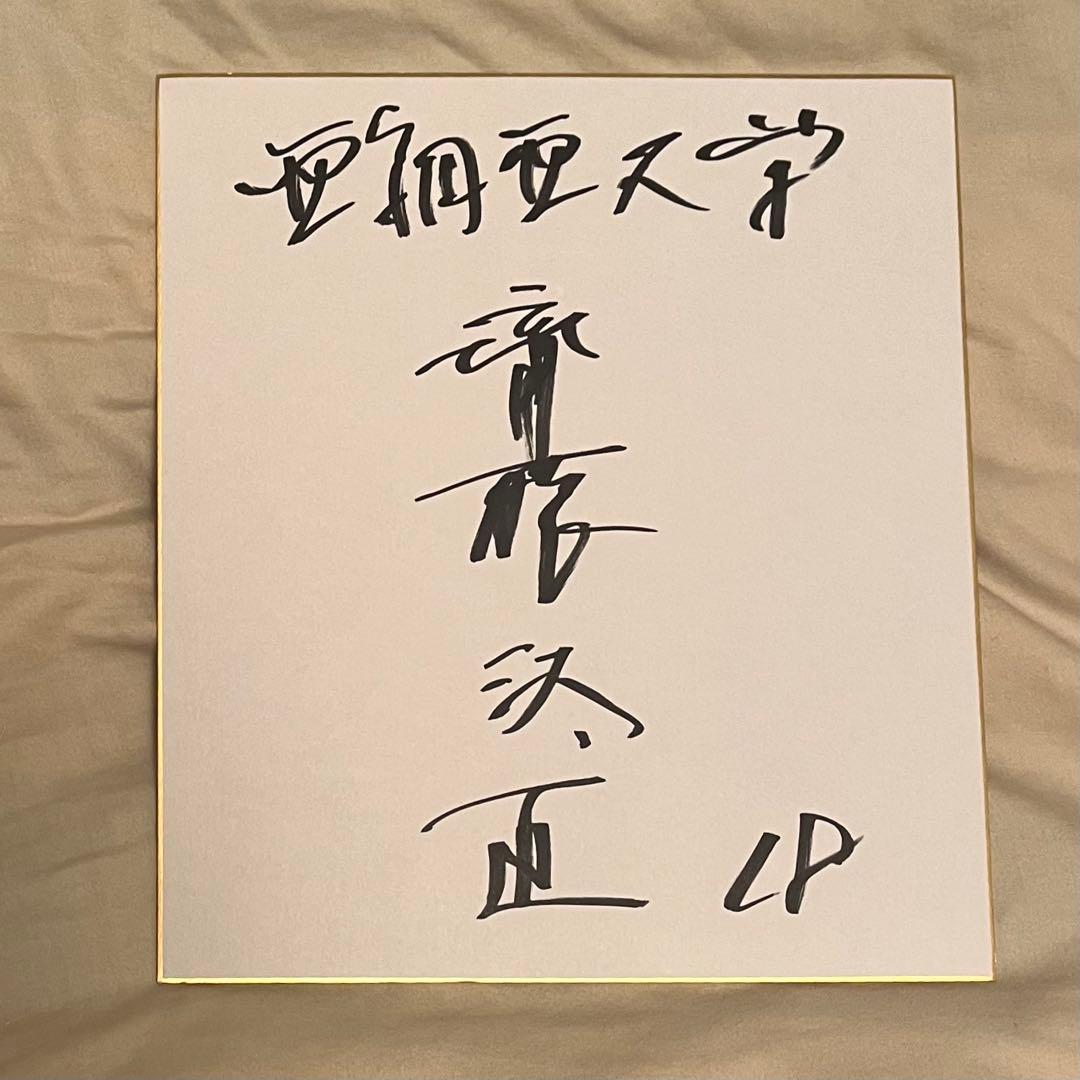 亜細亜大学
齊藤
汰直